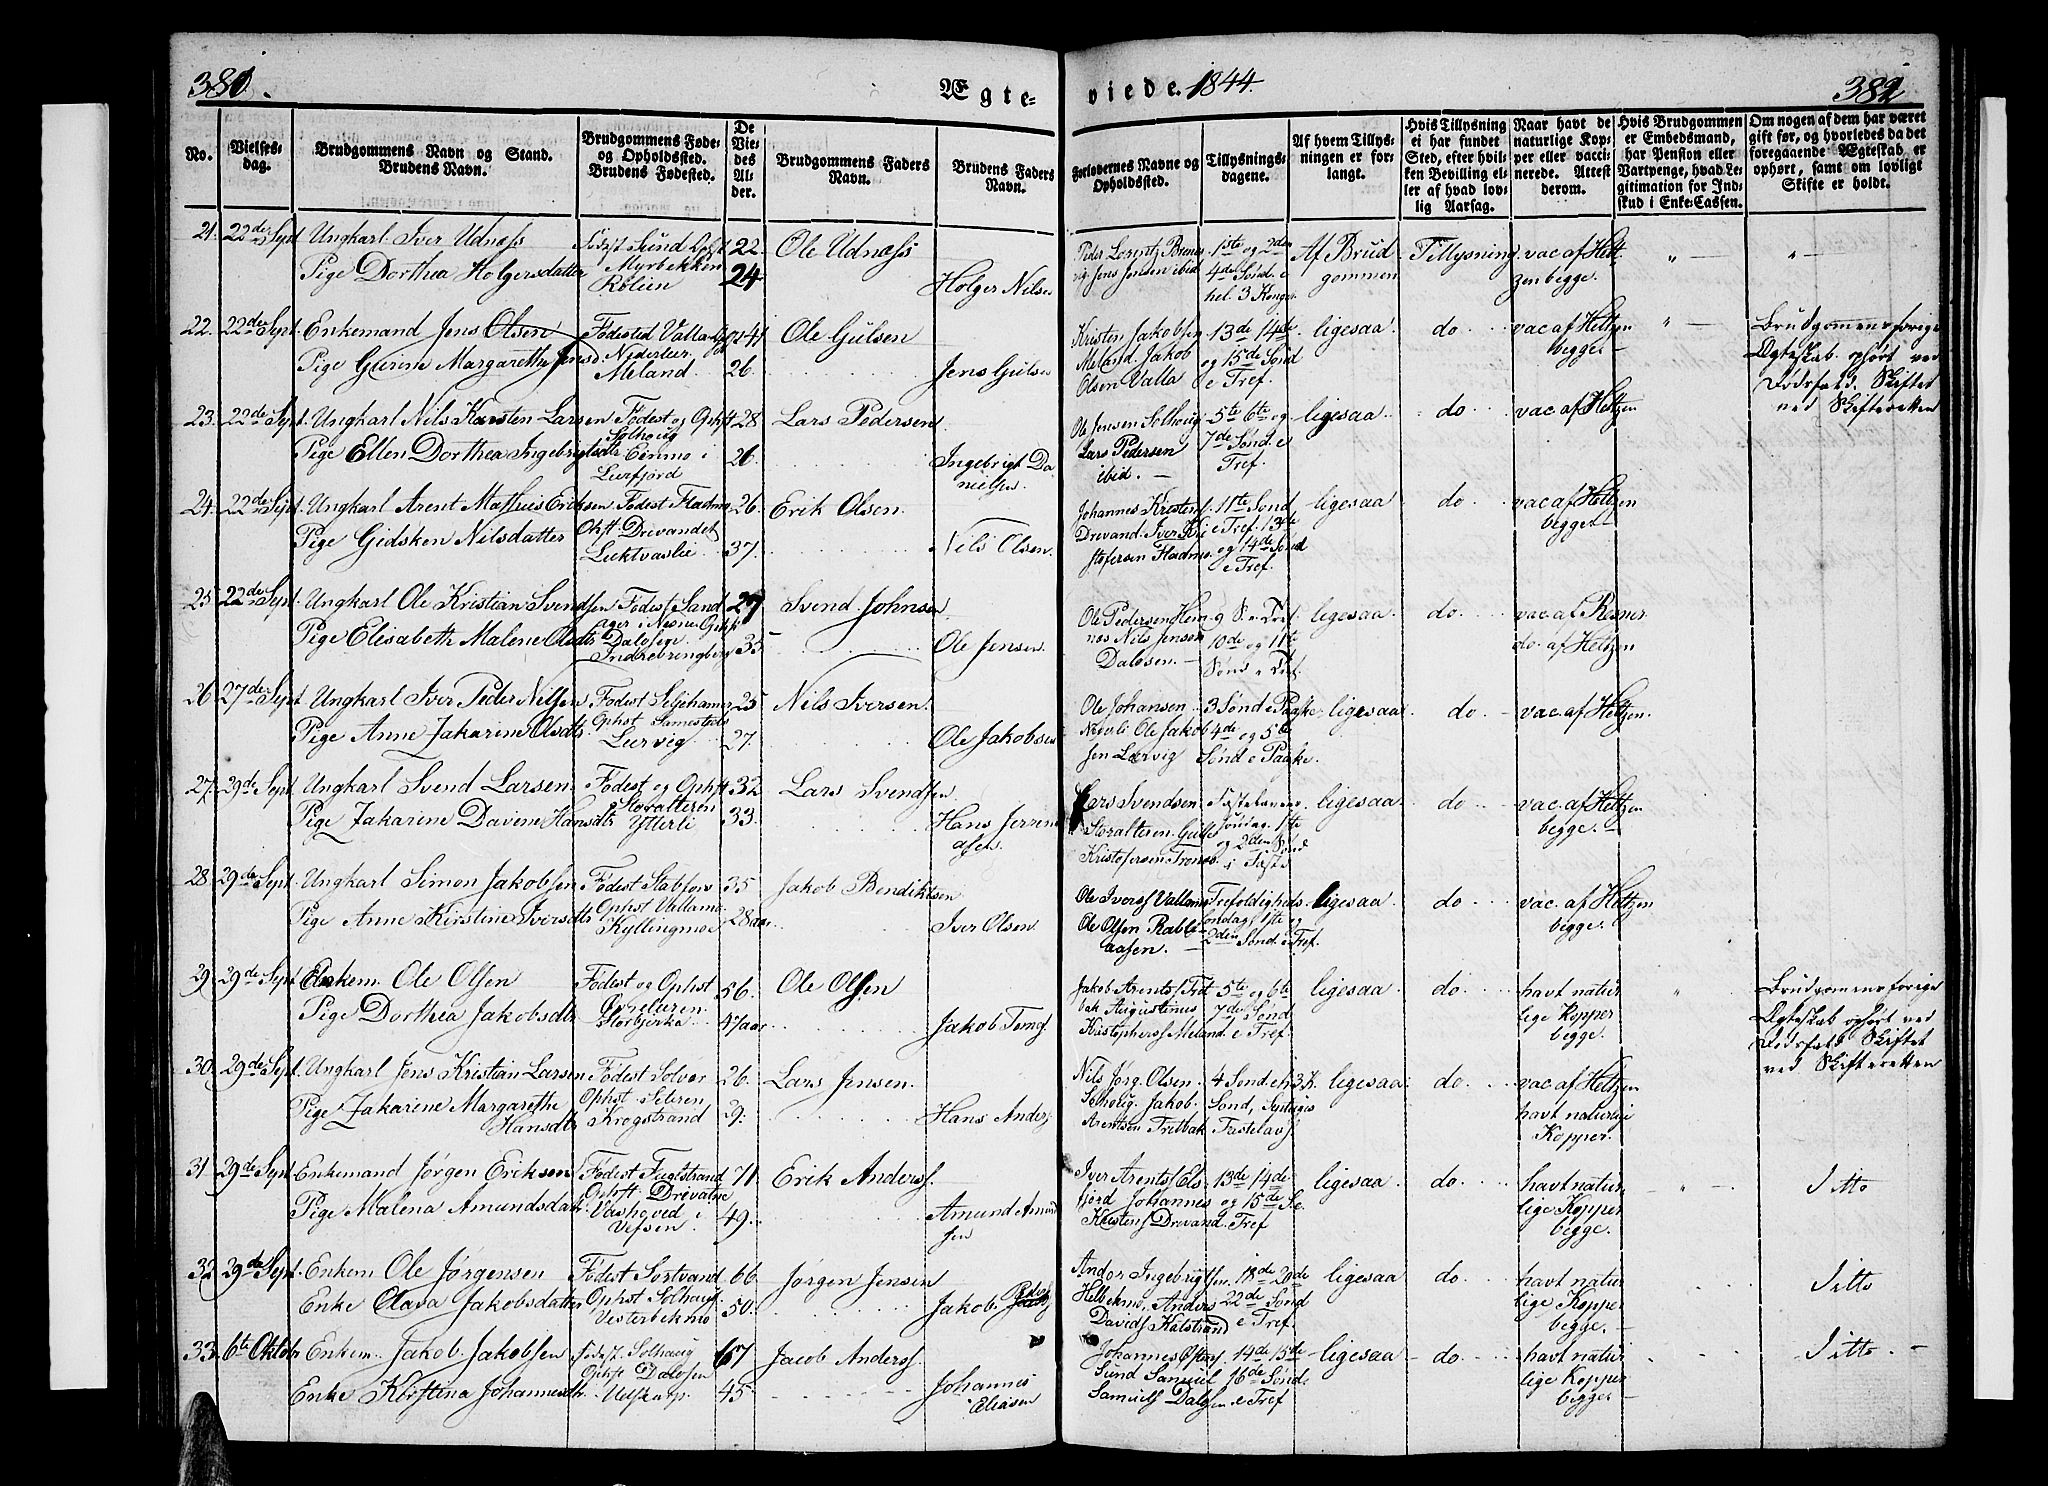 381.
Ægte-
viede. 1844.
382
No.
Vielses-
dag.
Brudgommens Navn og Stand.
Brudens Navn.
Brudgommens Føde-
og Opholdssted.
Brudens Fødested.
De
Vie-
des
Al-
der.
Brudgommens Faders
Navn.
Brudens Faders
Navn.
Forlovernes Navne og
Opholdssted.
Tillysnings-
dagene.
Af hvem Tillys-
ningen er for-
langt.
Hvis Tillysning
ei har fundet
Sted, efter hvil-
ken Bevilling el-
ler af hvad lov-
lig Aarsag.
Naar havt de
naturlige Kop-
per eller vacci-
nerede. Attest
derom.
Hvis Brudgommen
er Embedsmand,
har Pension eller
Vartpenge, hvad Le-
gitimation for Ind-
skud i Enke-Cassen.
Om nogen af dem har været
gift før, og hvorledes da det
foregaaende Ægteskab er
ophørt, samt om lovligt
Skifte er holdt.
21. 22de Sept Ungkarl Iver Udnæss
Pige Dorthea Holgersdatter
Myrbekken
Rølien
22
24
Ole Udnæss
Holger Nilse
Jens Jensen ibid
1ste og 2den
4de Sønd. e
hel. 3 Konger
Af Brud
gommen
Tillysning
vac af Helt
zen begge.
22. 22de Sept. Enkemand Jens Olsen
Pige Gurine Margaretha Jensd
Fødested Valla
Nederleir
Meland
41
26.
Ole Gulsen
Jens Gulse
Kristen Jakobsen
Meland Jakob
Olsen Valla
13de 14de
og 15de Sønd
e Tref.
ligesaa
do
vac af Heltzen
begge
Brudgommens forige
Ægteskab ophørt ved
Dødsfald. Skiftet
ved Skifteretten
23. 22de Sept. Ungkarl Nils Karsten Larsen
Pige Ellen Dorthea Ingebrigtsdtr
Fødest og Ophst
Solhoug
Einmo i
Leirfjord
28
26.
Lars Pedersen
Ingebrigt Da
nielsen
Ole Jensen Solhoug
Lars Pedersen
ibid.
5te 6te og
7de Sønd. e
Tref.
ligesaa
do
vac af Heltzen
24. 22de Sept. Ungkarl Arent Mathis Eriksen
Pige Gidsken Nilsdatter
Fødest Fladmo
Ophst. Drevandet
Luktvaslie
26.
37.
Erik Olsen.
Nils Olsen.
Johannes Kristens
Drevand. Iver Kri
stofersen Fladmo
11te Sønd
e Tref. 13de
og 14de Sønd
e Tref.
ligesaa
do
vac af Heltzen
begge
25 22de Sept. Ungkarl Ole Kristian Svendsen
Pige Elisabeth Malene Olsdtr
Fødest Sand
ager i Nesne Ophst
Dalosen
Indrebringberg
27
35
Svend Johnsen
Ole Jensen
Ole Pedersen
Nils Jensen
Dalosen.
10de og 11te
Sønd e Tref.
ligesaa
do.
vac. af
do. af Heltzen
26 27de Sept Ungkarl Iver Peder Nilsen
Pige Anne Jakarine Olsdtr
Ophst
Leirvig
25
27.
Nils Iversen.
Ole Jakobsen
Ole Johansen
Ole Jakob
sen Lærvig
3 Sønd e Paaske
4de og 5te
Sønd e Paaske.
ligesaa
do.
vac. af Heltzen.
27. 29de Sept Ungkarl Svend Larsen
Pige Jakarine Davine Hansdtr
Fødest og Ophst
Storalteren
Ytterli
32
33.
Lars Svendsen
Hans
Lars Svendsen
Storalteren.
Kristofersen
Søndag. 1ste
og 2den Sønd
i Faste
ligesaa
do
vac af Heltzen
begge.
28. 29de Sept Ungkarl Simon Jakobsen
Pige Anne Kirstine Iversdtr
Fødest Stabfors
Ophst Vallamo
Kyllingmoe
35
28 aar.
Jakob Bendiktsen
Iver Olsen.
Ole Ivers Vallamo
Ole Olsen Rabbe
aasen.
Trefoldigheds
søndag, 1ste og
2den Sønd. e Tref.
ligesaa
do
vac. af Heltzen
begge.
29. 29de Sept Enkem. Ole Olsen
Pige Dorthea Jakobsdtr
Fødest og Ophst
Storbjerka
56.
47 aar
Ole Olsen
Jakob Tomes
Jakob Arents Tret
bak Augustinus
Kristophers Meland.
5te og 6te
7de Sønd
e Tref.
ligesaa
do.
havt natur
lige Kopper
begge.
Brudgommens forige
Ægteskab ophørt ved
Dødsfald Skiftet
ved Skifteretten
30. 29de Sept. Ungkarl Jens Kristian Larsen
Pige Jakarine Margarethe
Hansdtr
Fødest Solvær
Ophst
Krogstrand
26.
39.
Lars Jensen.
Hans Anders
Nils Jørg. Olsen.
Jakob
Arentsen Tretbak
4 Sønd e h 3 K.
Sønd,
Fastelavs
ligesaa
do.
vac af Heltzen
havt naturlige
Kopper.
31 29de Sept. Enkemand Jørgen Eriksen
Pige Malena Amundsdatr
Fødest Fuglstrand
Ophst Drevatne
Vashoved i
Vefsen
71
49.
Erik Anders
Amund Amund
sen
Iver Arents Els
fjord Johannes
Kristens Drevand.
13de 14de
og 15de S. e.
Tref
ligesaa
do.
havt natur
lige Kopper
begge.
Ditto
32. 29de Sept. Enkem Ole Jørgensen
Enke Olava Jakobsdatter
Fødest Sørtvand
Ophst Solhaug
Vesterbekmo
66
50.
Jørgen Jensen
Jakob Peders
Andor Ingebrigtsen.
Anders
Davids Kalstrand
18de 20de
22de Sønd
e Tref.
ligesaa
do.
havt natur
lige Kopper
begge.
Ditto
33. 6te Oktobr Enkem. Jakob Jakobsen
Enke Kirstina Johannesdtr
Fødest. Solhaug
Ophst Dalosen
67
45
Jacob Anders
Johannes
Eliasen
Johannes Ols
Sund Samuel
Samuels Dalosen
14de 15de
16de Sønd
e Tref
ligesaa
do.
havt natur
lige Kopper
begge
Ditto.